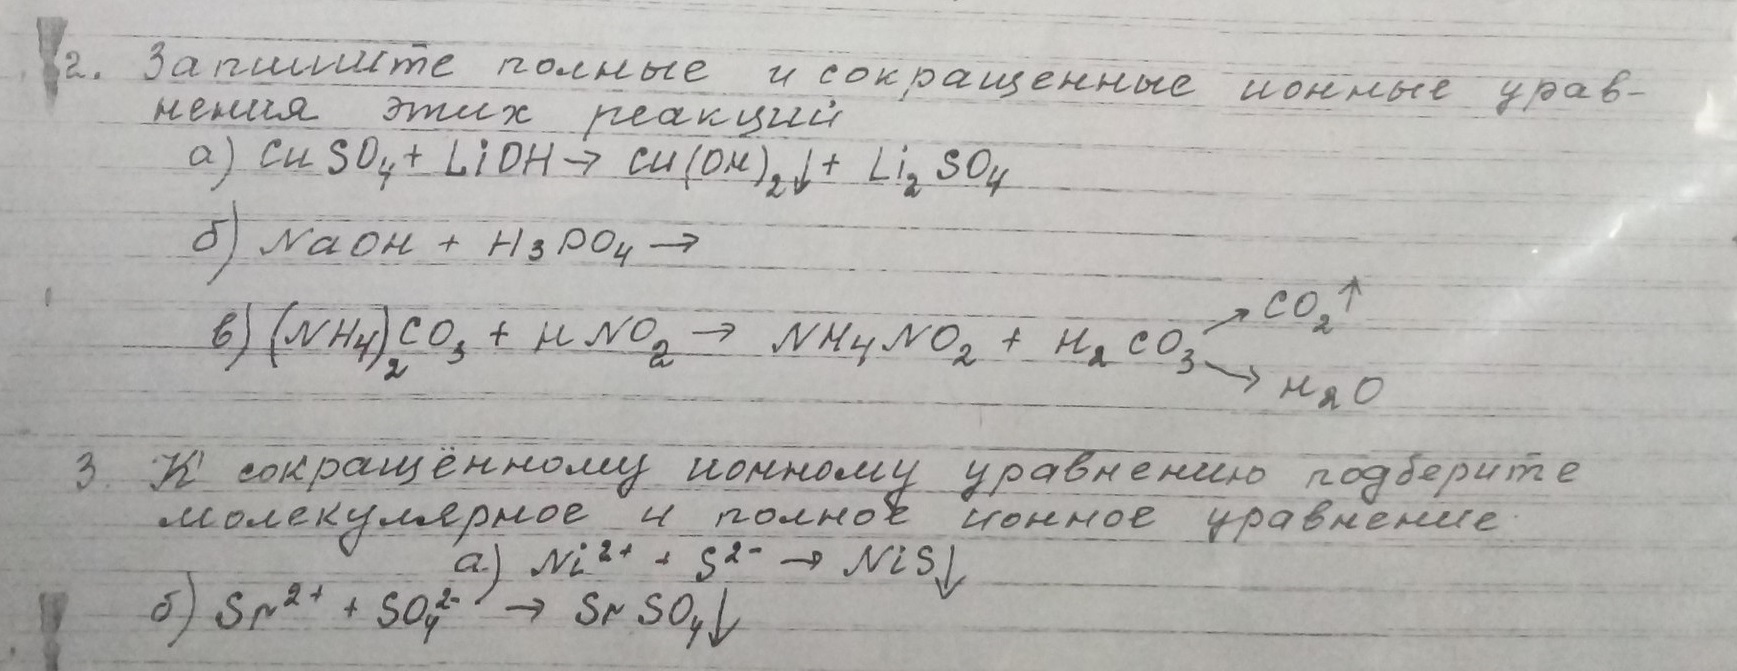 2. Запишите полные и сокращенные ионные урав-
нения этих реакций
а) CuSO₄ + LiOH → Cu(OH)₂↓ + Li₂SO₄
б) NaOH + H₃PO₄ →
в) (NH₄)₂CO₃ + HNO₂ → NH₄NO₂ + H₂CO₃ ↗ CO₂↑
↘ H₂O
3. К сокращённому ионному уравнению подберите
молекулярное и полное ионное уравнение.
а) Ni²⁺ + S²⁻ → NiS↓
б) Sr²⁺ + SO₄²⁻ → SrSO₄↓